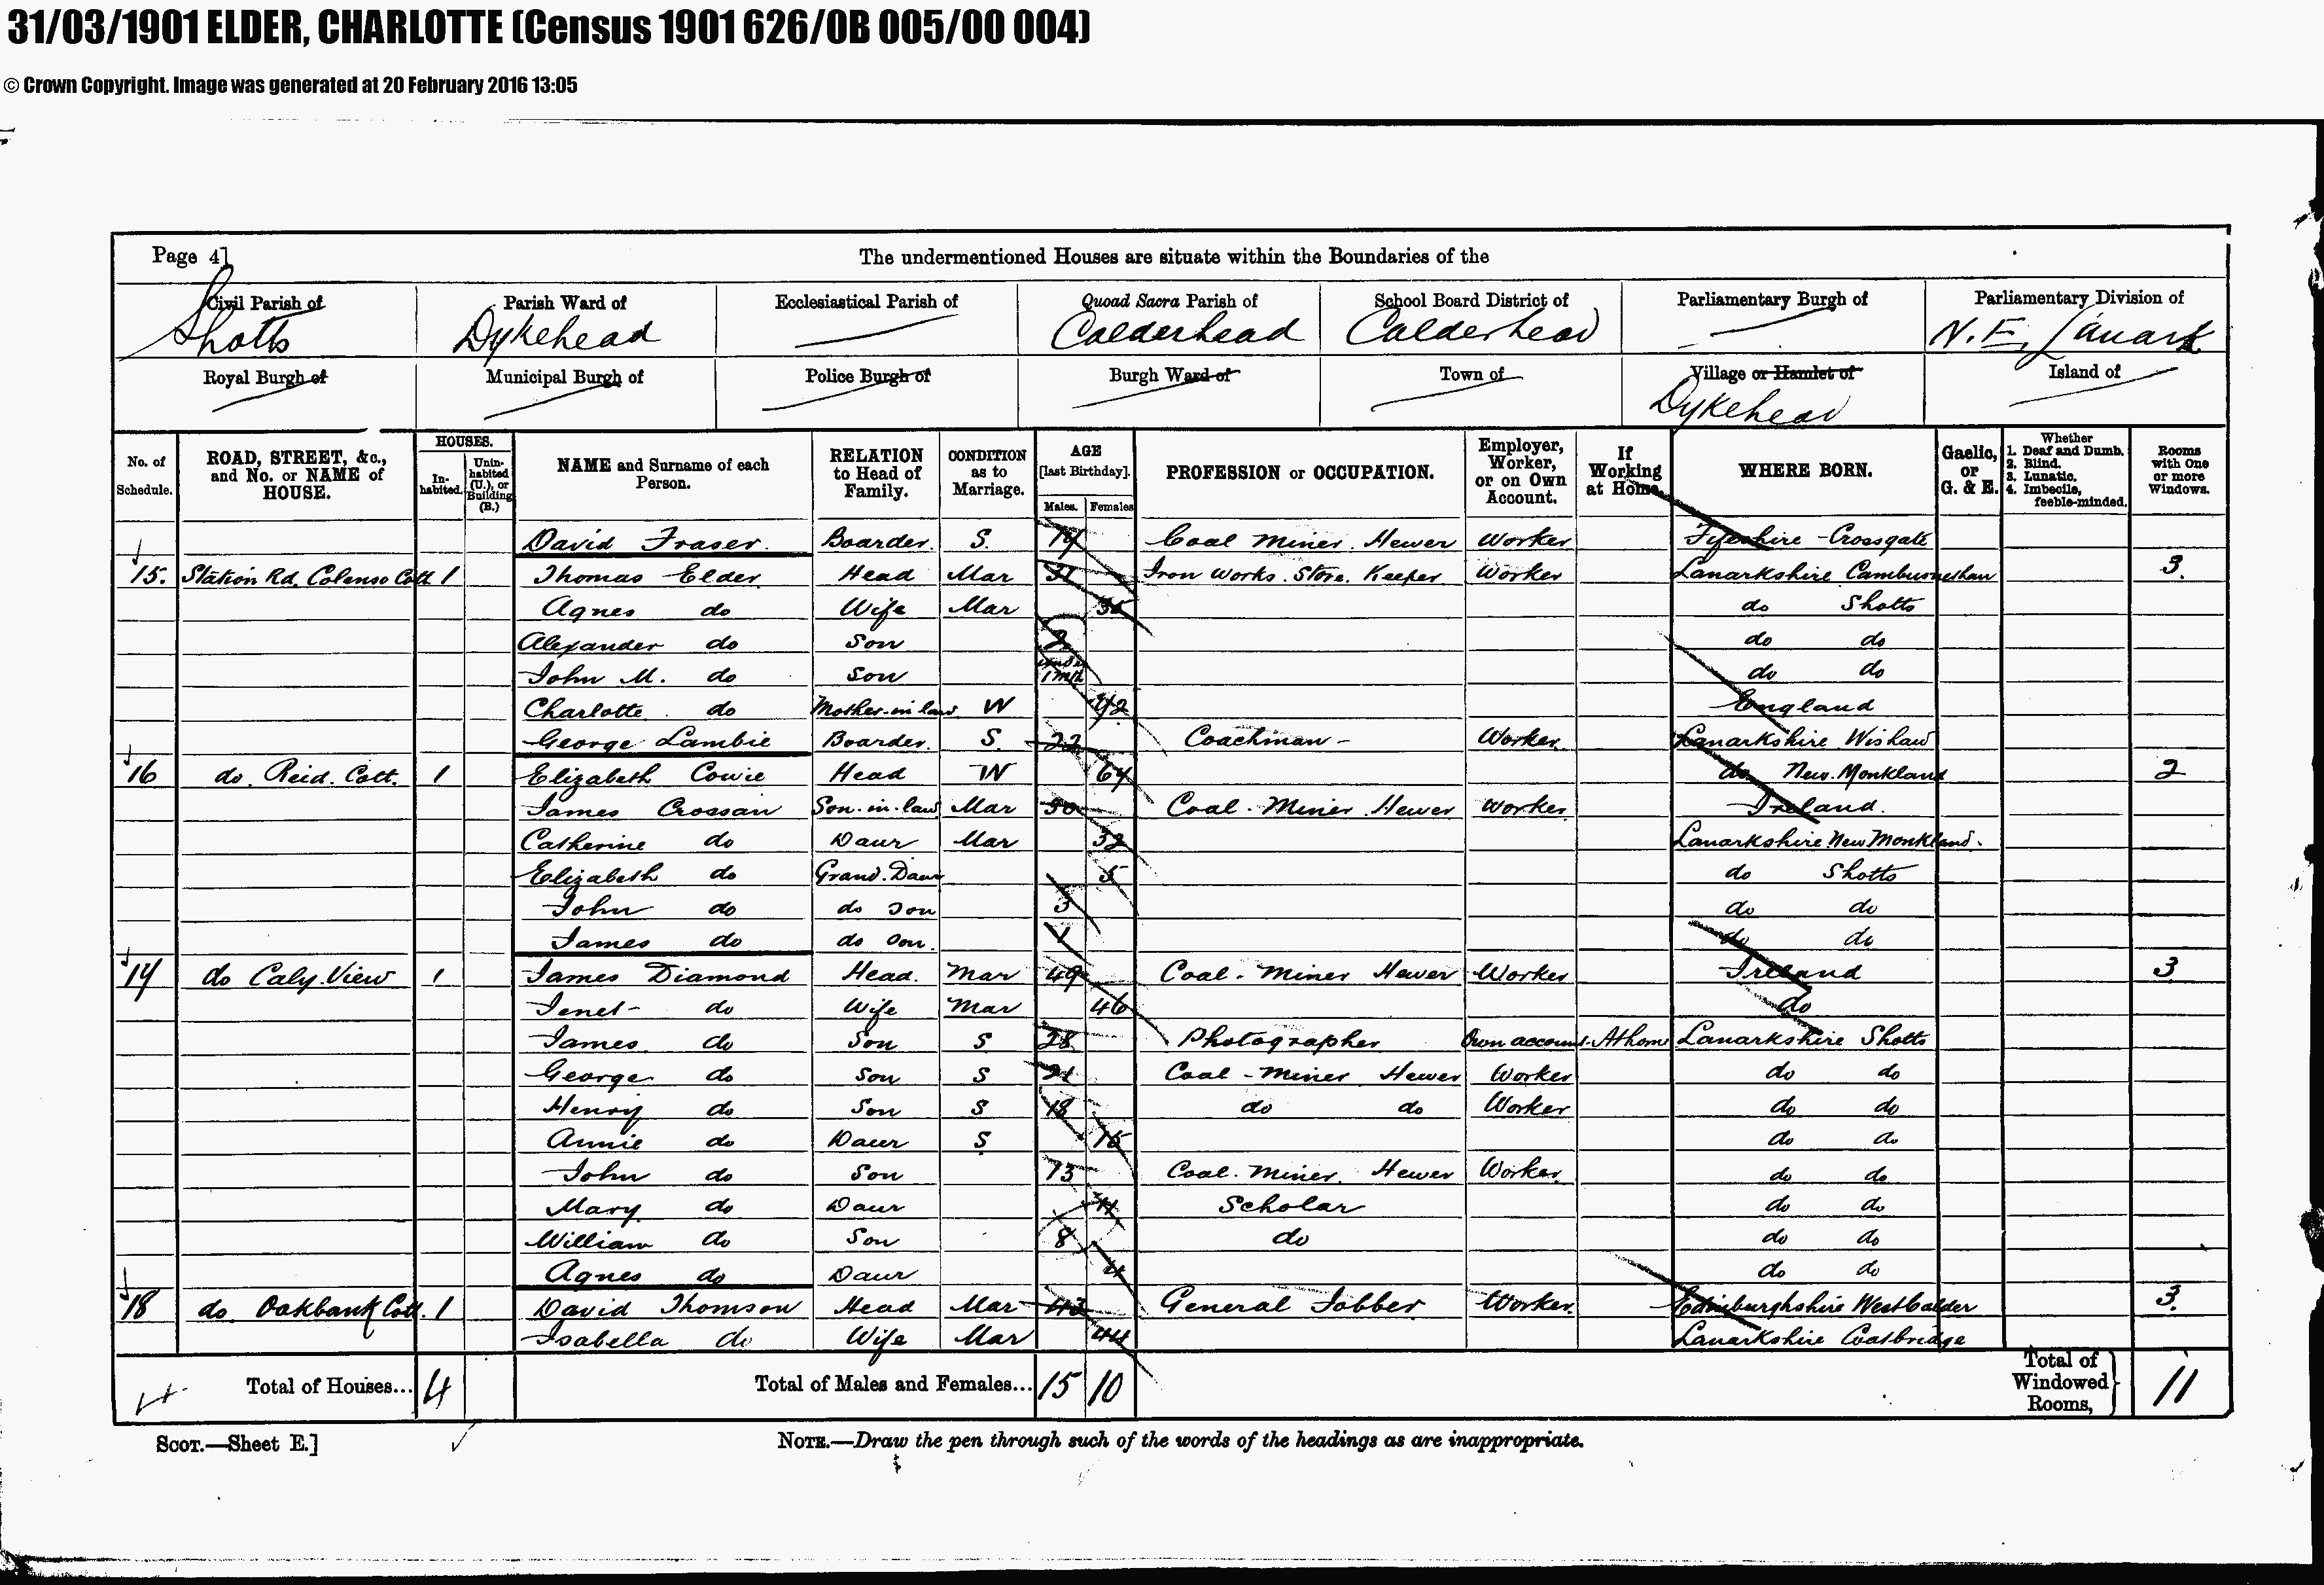 31/03/1901 ELDER, CHARLOTTE (Census 1901 626/0B 005/00 004)
© Crown Copyright. Image was generated at 20 February 2016 13:05
Page 4] The undermentioned Houses are situate within the Boundaries of the
Civil Parish of Parish Ward of Ecclesiastical Parish of Quoad Sacra Parish of School Board District of Parliamentary Burgh of Parliamentary Division of
Shotts Dykehead Calderhead Calderhead N. E. Lanark
Royal Burgh of Municipal Burgh of Police Burgh of Burgh Ward of Town of Village or Hamlet of Island of
Dykehead
No. of Schedule. ROAD, STREET, &c., and No. or NAME of HOUSE. HOUSES. In-habited. Unin-habited (U.), or Building (B.) NAME and Surname of each Person. RELATION to Head of Family. CONDITION as to Marriage. AGE [last Birthday]. Males. Females. PROFESSION or OCCUPATION. Employer, Worker, or on Own Account. If Working at Home. WHERE BORN. Gaelic, or G. & E. Whether 1. Deaf and Dumb. 2. Blind. 3. Lunatic. 4. Imbecile, feeble-minded. Rooms with One or more Windows.
David Fraser. Boarder. S. Coal Miner. Hewer Worker Fifeshire - Crossgate
15. Station Rd. Colenso Cott 1 Thomas Elder Head Mar 31 Iron Works. Store. Keeper Worker Lanarkshire Cambusnethan 3.
Agnes do Wife Mar do Shotts
Alexander do Son 2 do do
John M. do Son under 1 mth do do
Charlotte do Mother-in-law W England
George Lambie Boarder. S. 22 Coachman - Worker. Lanarkshire Wishaw
16 do. Reid. Cott. 1 Elizabeth Cowie Head W 64 do New. Monkland 2
James Crossan Son-in-law Mar 30 Coal - Miner. Hewer Worker. Ireland.
Catherine do Daur Mar 32 Lanarkshire New Monkland.
Elizabeth do Grand. Daur 5 do Shotts
John do do Son 3 do do
James do do Son. 1 do do
17 do Caly. View 1 James Diamond Head. Mar 49 Coal - Miner Hewer Worker Ireland 3
Jenet do Wife Mar 46 do
James. do Son S 28 Photographer Own account. At home Lanarkshire Shotts
George do Son S 21 Coal - Miner Hewer Worker do do
Henry do Son S 18 do do Worker do do
Annie do Daur S 15 do do
John do Son 13 Coal. Miner. Hewer Worker. do do
Mary do Daur 11 Scholar do do
William do Son 8 do do do
Agnes do Daur 4 do do
18 do. Oakbank Cott. 1 David Thomson Head Mar 43 General Jobber Worker. Edinburghshire West Calder 3.
Isabella do Wife Mar 44 Lanarkshire Coatbridge
Total of Houses... 4 Total of Males and Females... 15 10 Total of Windowed Rooms, 11
SCOT.—Sheet E.] NOTE.—Draw the pen through such of the words of the headings as are inappropriate.